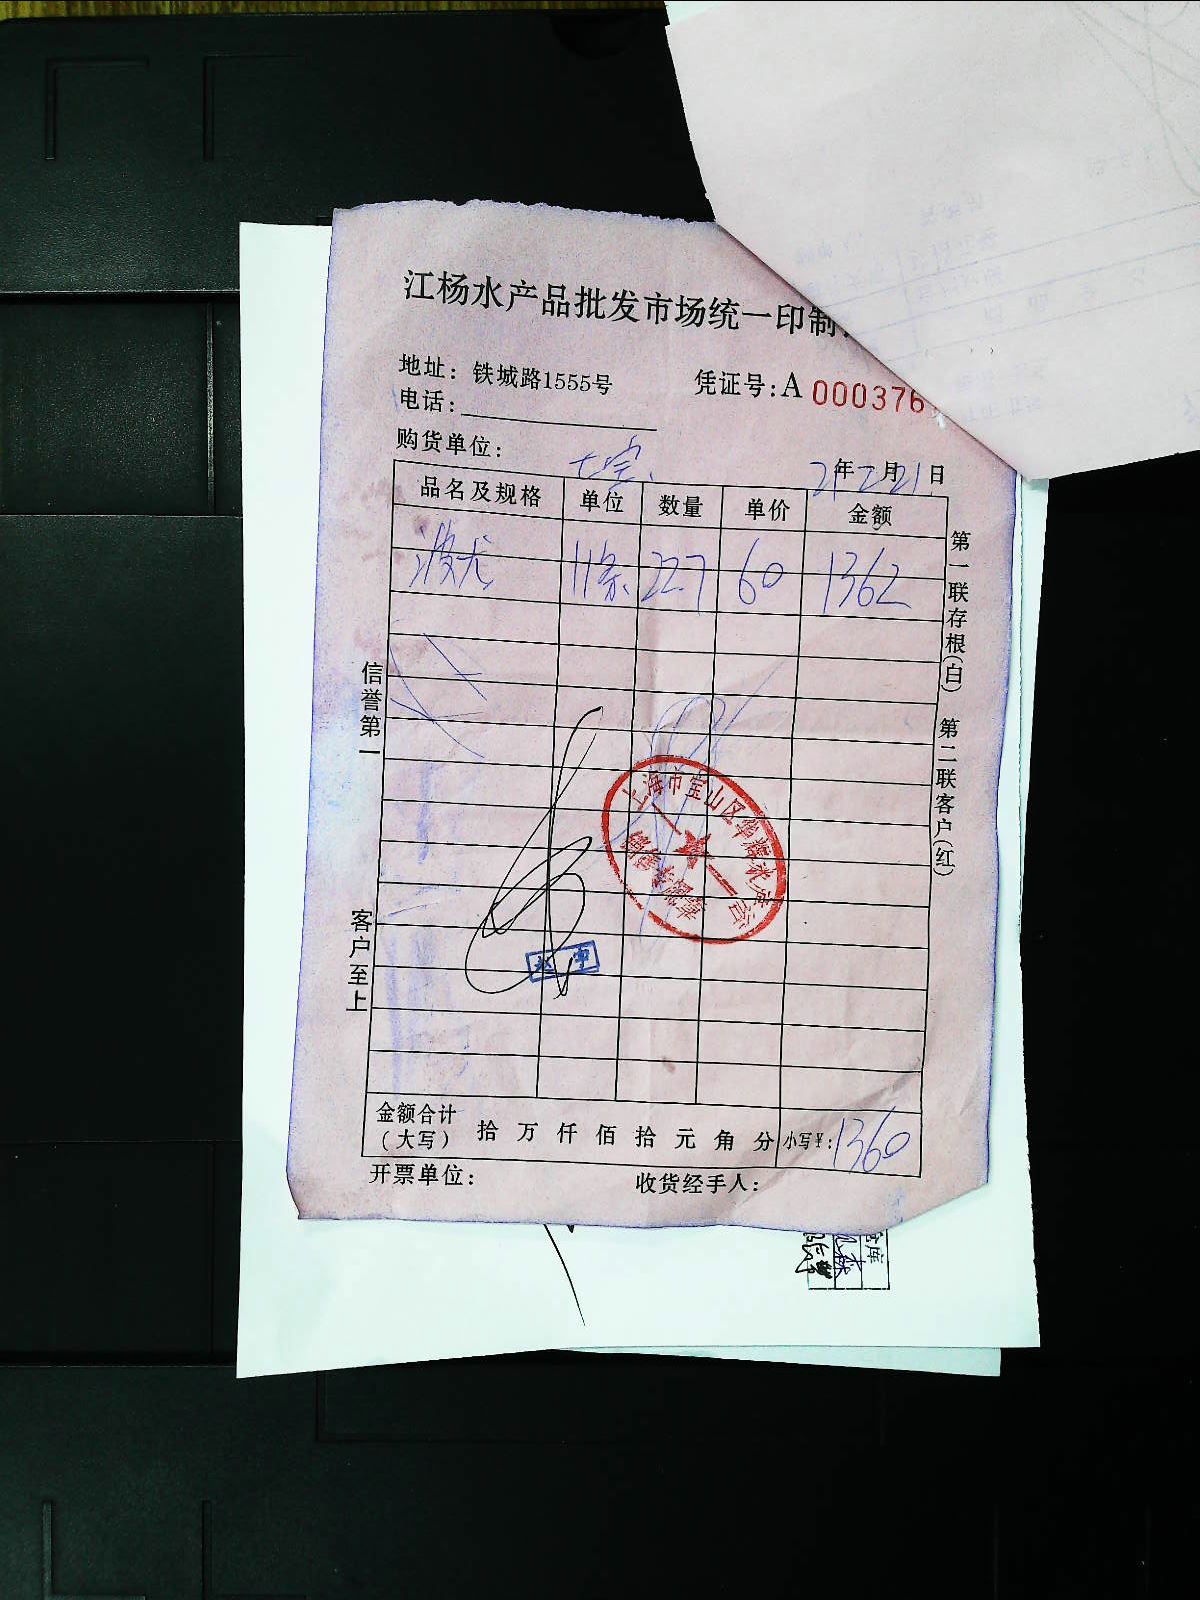 江杨水产品批发市场统一印制
地址：铁城路1555号
凭证号：A 000376
电话：
购货单位：七宝
21年2月21日
品名及规格 单位 数量 单价 金额
波龙 11条 22.7 60 1362
金额合计（大写） 拾 万 仟 佰 拾 元 角 分 小写￥：1360
开票单位： 收货经手人：
信誉第一
客户至上
第一联存根（白） 第二联客户（红）
上海市宝山区华
仓库